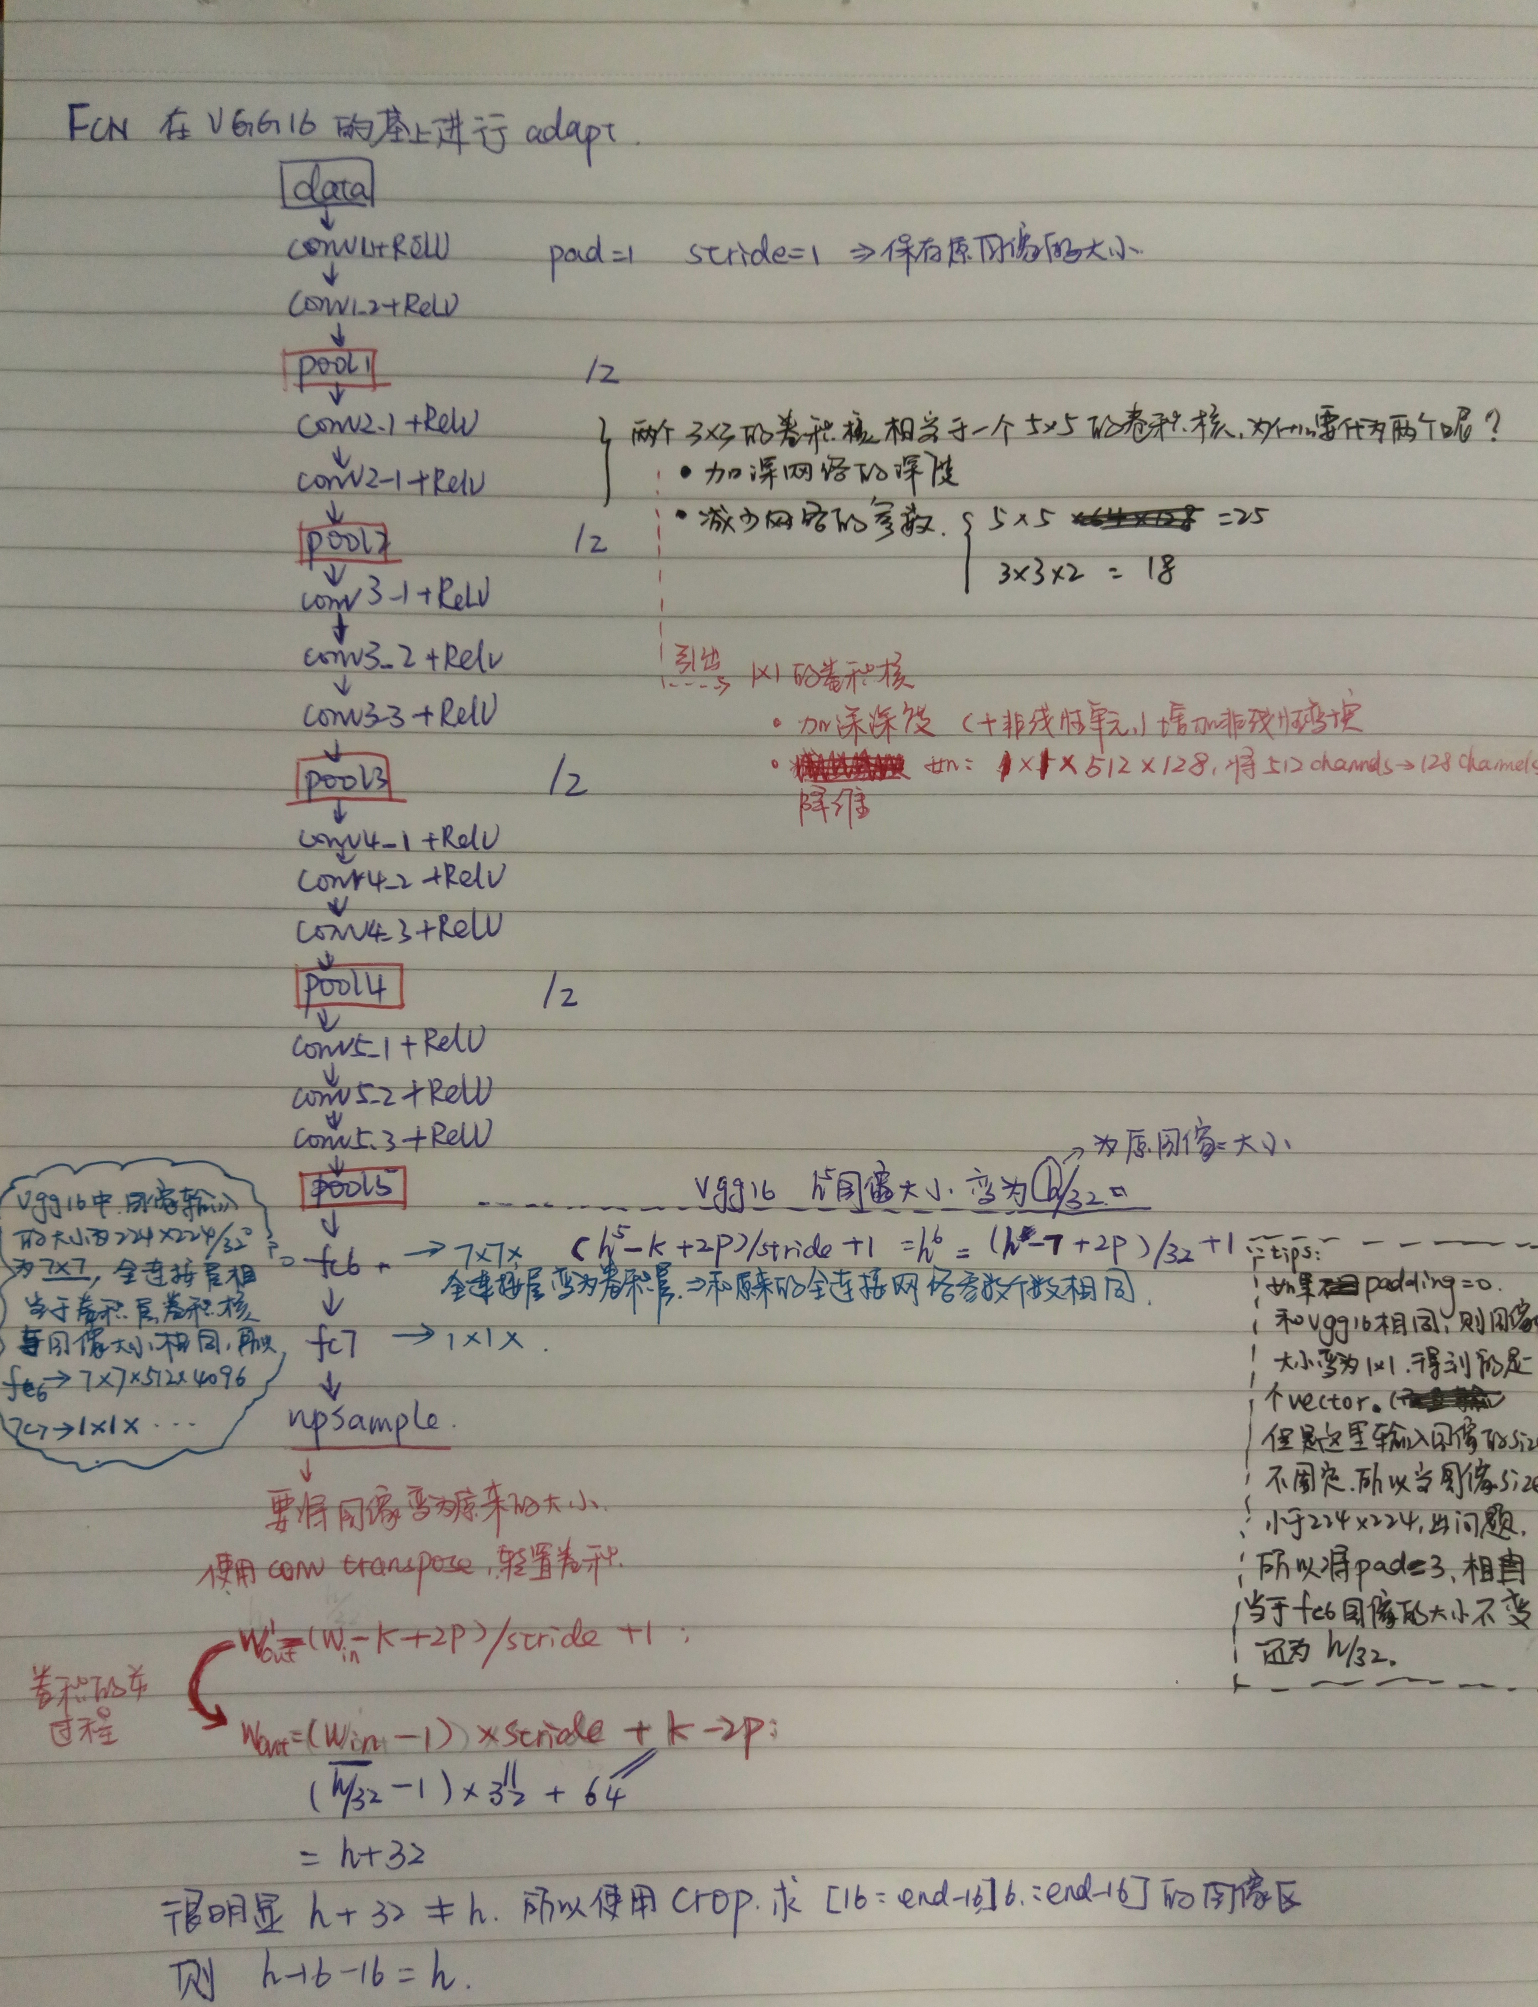 FCN 在 VGG16 的基上进行 adapt.
data
conv1.1+ReLU pad=1 stride=1 ⇒保存原图像的大小.
conv1-2+ReLU
pool1 /2
conv2-1+ReLU 两个3×3的卷积核相当于一个5×5的卷积核,为什么要代为两个呢?
• 加深网络的深度
conv2-1+ReLU
• 减少网络的参数. 5×5 =25
pool2 /2
3×3×2 = 18
conv3-1+ReLU
conv3-2+ReLU 引出 1×1的卷积核
conv3-3+ReLU • 加深深度 (+非线性单元,)增加非线性变换
pool3 /2 • 如: 1×1×512×128,将512 channels→128 channels
降维
conv4-1+ReLU
conv4-2+ReLU
conv4-3+ReLU
pool4 /2
conv5-1+ReLU
conv5-2+ReLU
conv5.3+ReLU →为原图像大小
pool5 vgg16 h⁵图像大小变为h/32
fc6 →7×7× (h⁵-k+2P)/stride+1=h⁶=(h-7+2P)/32+1
全连接层变为卷积层⇒和原来的全连接网络参数个数相同.
fc7 →1×1×.
upsample.
vgg16中图像输入
的大小为224×224/32
为7×7, 全连接层相
当于卷积层卷积核
与图像大小相同,所以
fc6→7×7×512×4096
fc7→1×1×...
tips:
如果padding=0.
和vgg16相同,则图像
大小变为1×1.得到的是一
个vector.
但是这里输入图像的size
不固定.所以当图像size
小于224×224,出问题,
所以将pad=3,相
当于fc6图像的大小不变
还为h/32.
要将图像变为原来的大小.
使用conv transpose,转置卷积.
W'out=(Win-K+2P)/stride+1;
卷积的
过程
Wout=(Win-1)×stride+k-2P;
(h/32-1)×32+64
=h+32
很明显 h+32≠h.所以使用crop.求[16:end-16]6.:end-16]的图像区
则 h-16-16=h.